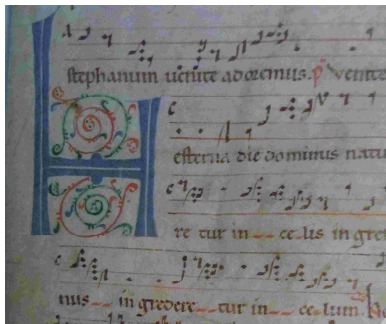 stephanum uenite adoremus. p̄ Venite
Hesterna die dominus natu
re tur in ce lis in gre
nus in gredere tur in ce lum.